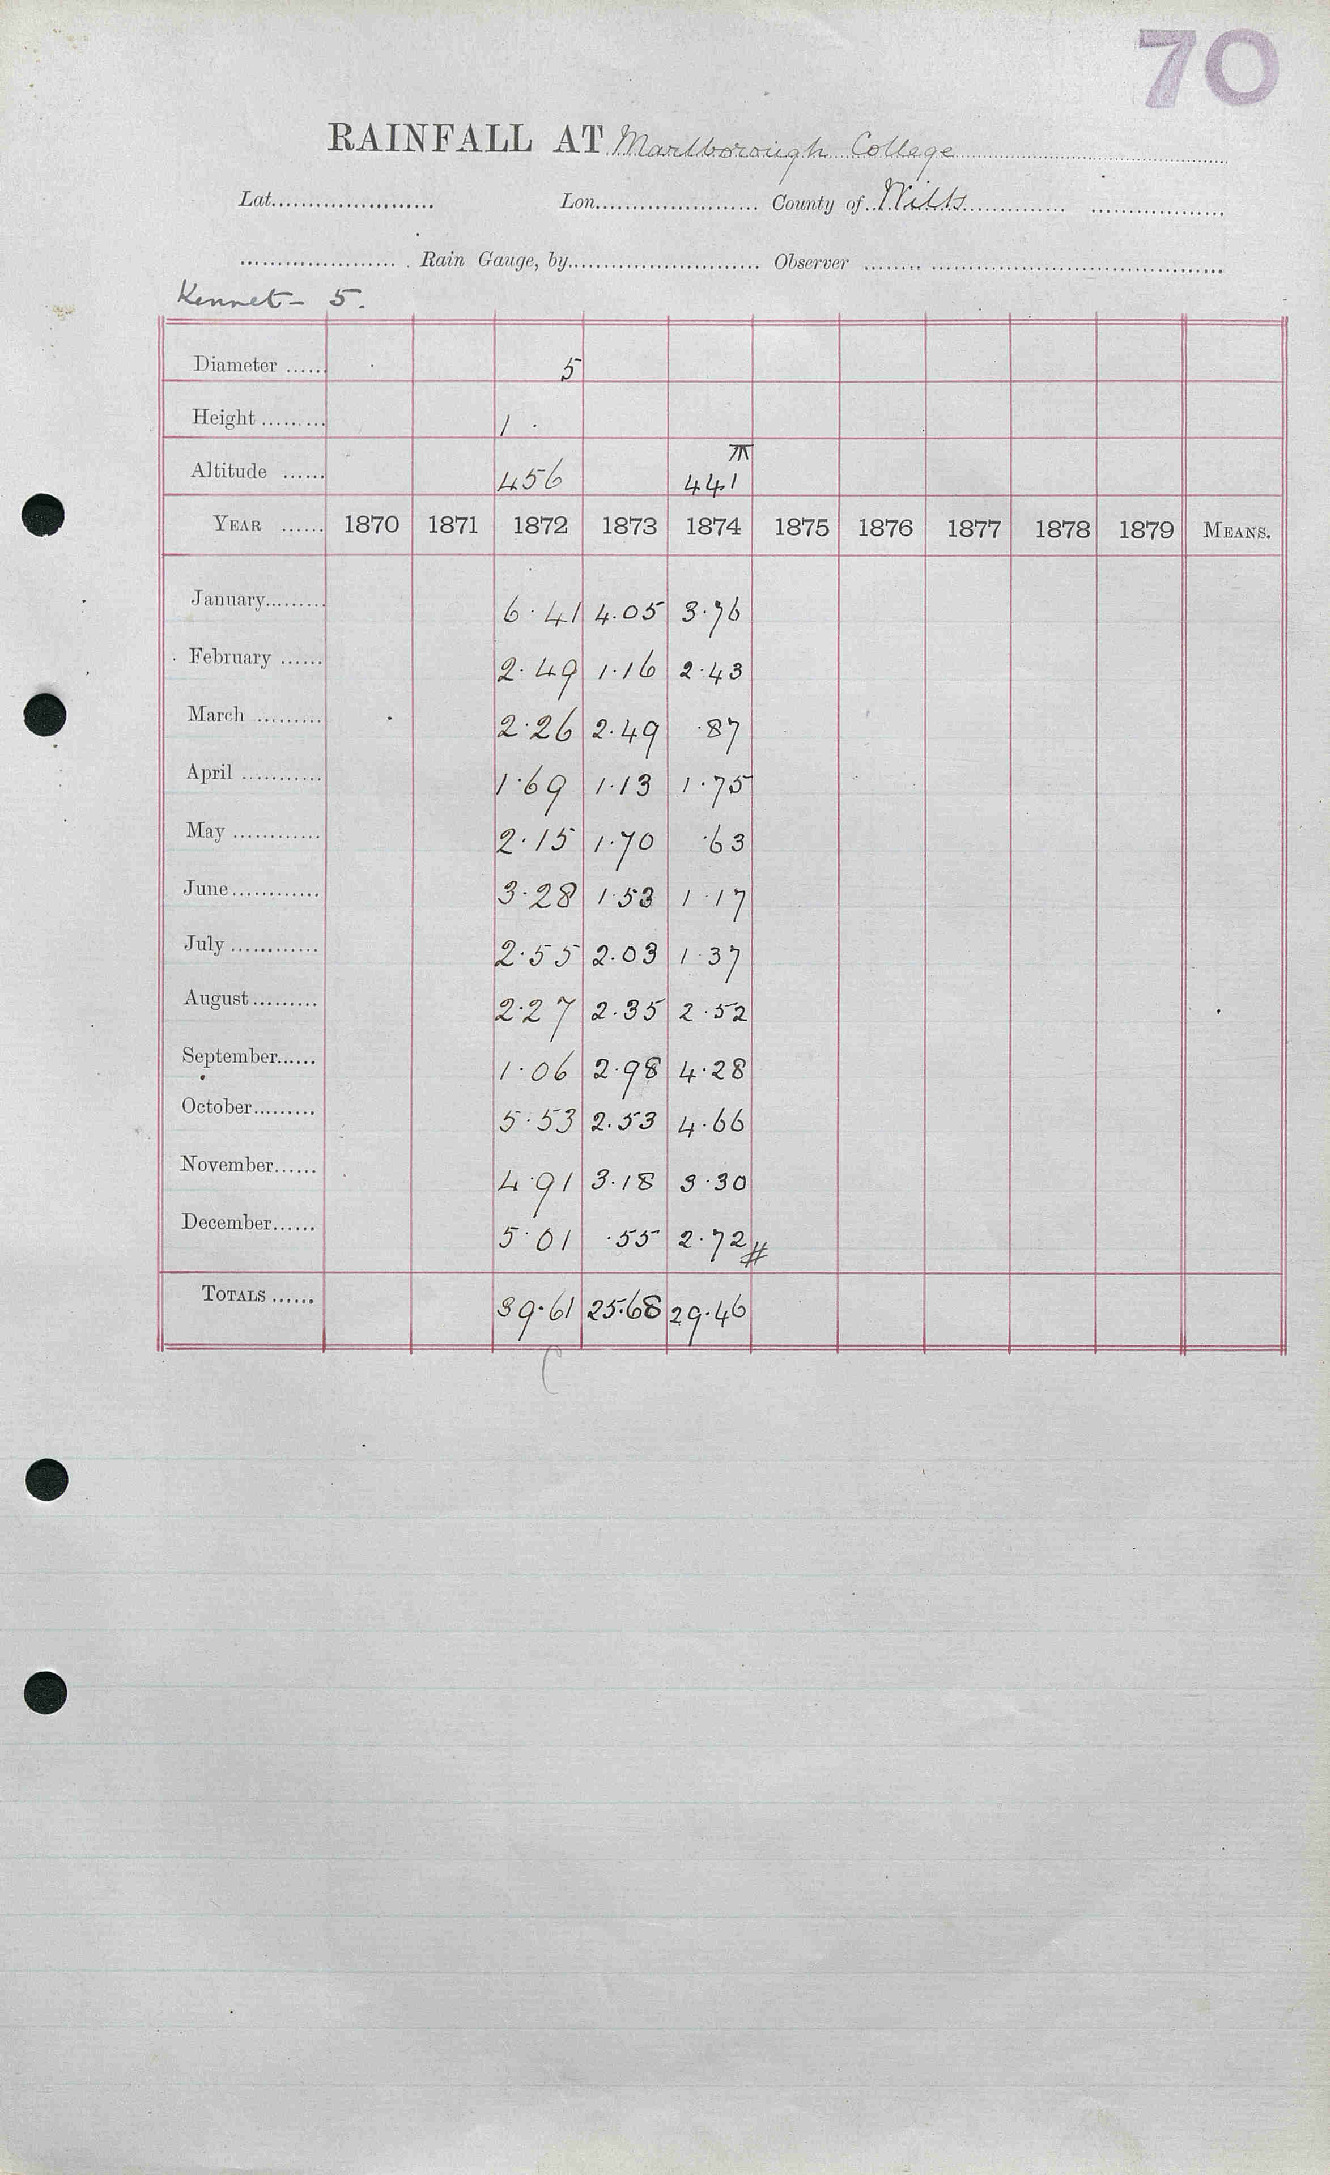 70
RAINFALL AT Marlborough College
Lat. Lon. County of Wilts
Rain Gauge, by Observer
Kennet - 5.
Diameter 5
Height 1
Altitude 456 441
YEAR 1870 1871 1872 1873 1874 1875 1876 1877 1878 1879 MEANS.
January 6.41 4.05 3.76
February 2.49 1.16 2.43
March 2.26 2.49 .87
April 1.69 1.13 1.75
May 2.15 1.70 .63
June 3.28 1.53 1.17
July 2.55 2.03 1.37
August 2.27 2.35 2.52
September 1.06 2.98 4.28
October 5.53 2.53 4.66
November 4.91 3.18 3.30
December 5.01 .55 2.72 #
TOTALS 39.61 25.68 29.46